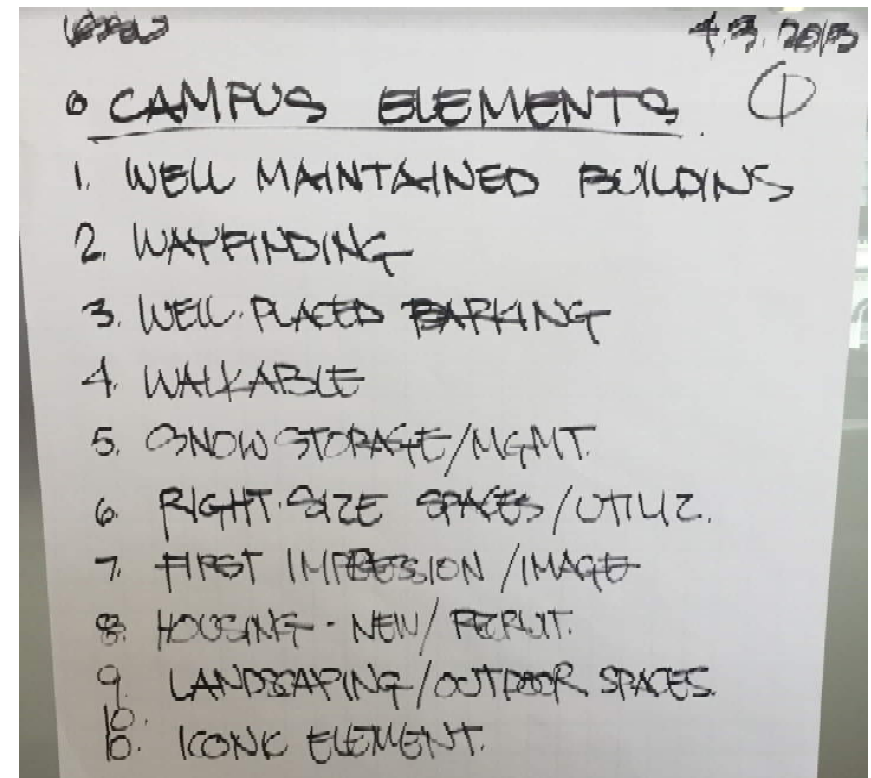 4.3.2013
CAMPUS ELEMENTS. 1
1. WELL MAINTAINED BUILDINS
2. WAYFINDING
3. WELL-PLACED PARKING
4. WALKABLE
5. SNOW STORAGE/MGMT.
6 RIGHT-SIZE SPACES/UTILIZ.
7. FIRST IMPRESSION/IMAGE
8. HOUSING - NEW/RECRUIT.
9. LANDSCAPING/OUTDOOR SPACES.
10. ICONIC ELEMENT.